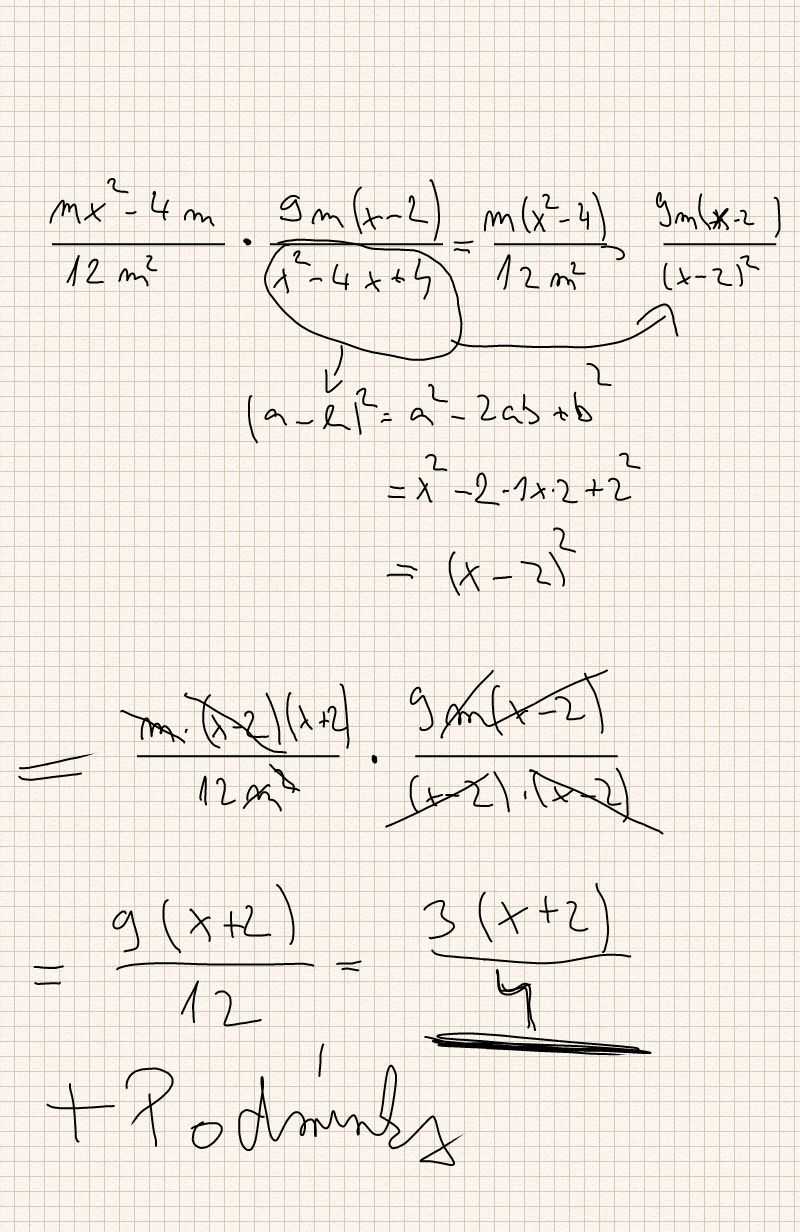 (mx² - 4m)/(12m²) · (9m(x-2))/(x² - 4x + 4) = (m(x² - 4))/(12m²) · (9m(x-2))/((x-2)²)
(a - b)² = a² - 2ab + b²
= x² - 2·1x·2 + 2²
= (x - 2)²
= (m·(x-2)(x+2))/(12m²) · (9m(x-2))/((x-2)·(x-2))
= (9(x+2))/12 = (3(x+2))/4
+ Podmínky